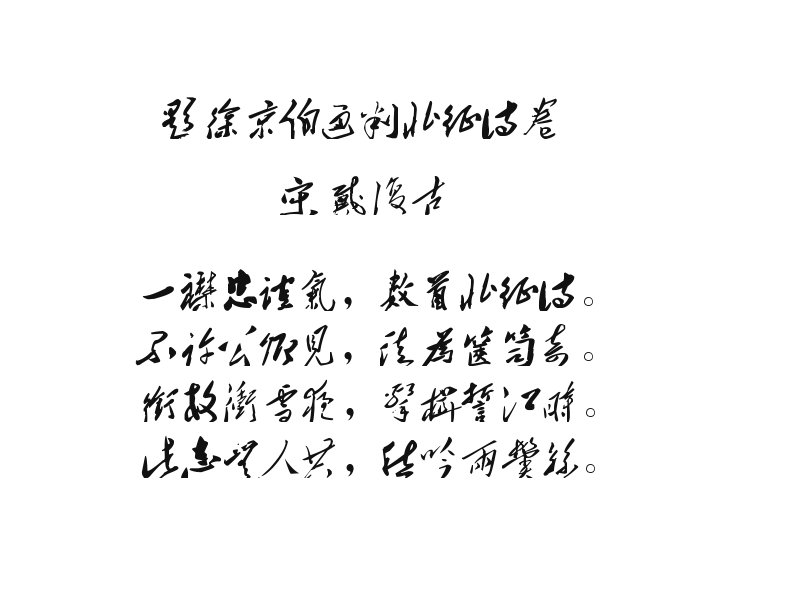 題徐京伯通判北征詩卷
宋 戴復古
一襟忠誼氣，數首北征詩。
不許公卿見，為篋笥奇。
銜枚衝雪夜，擊楫誓江時。
此志無人共，徒吟兩鬢絲。